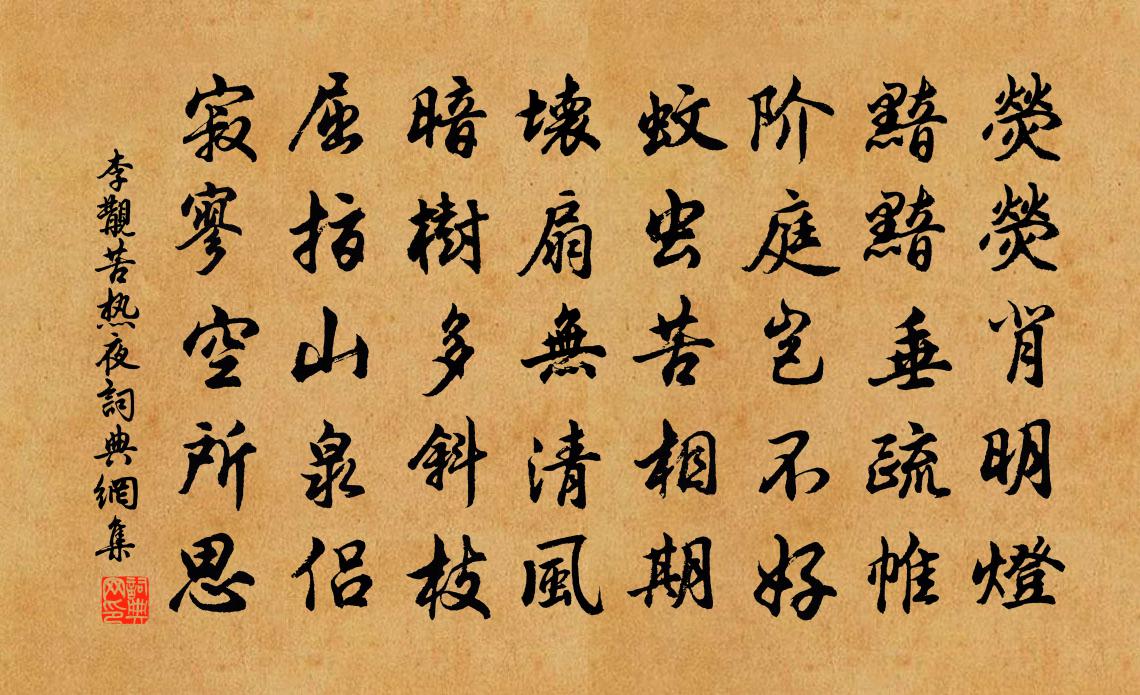 熒熒背明燈
黯黯垂疏帷
阶庭岂不好
蚊虫苦相期
壞扇無清風
暗樹多斜枝
屈指山泉侣
寂寥空所思
李覯苦热夜詞典網集
詞典网印